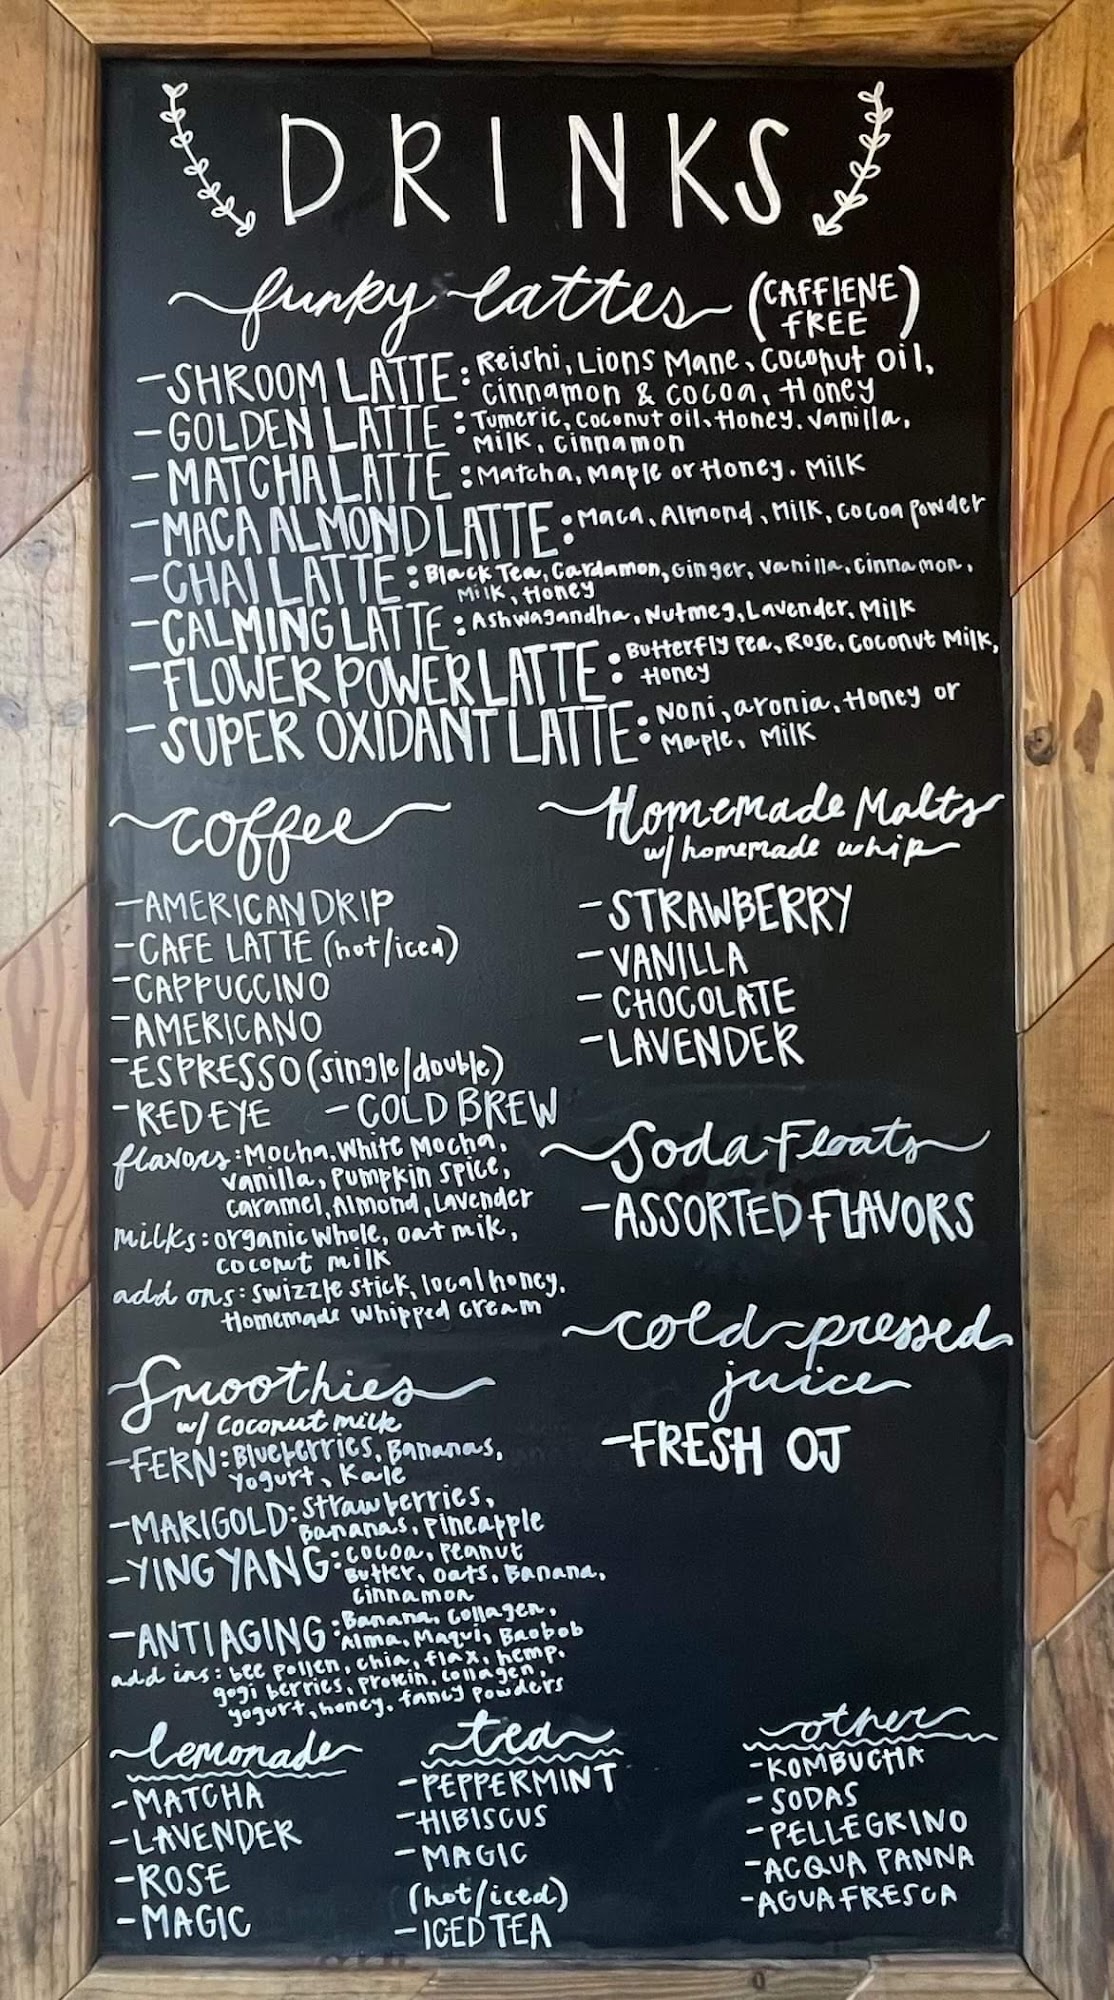 DRINKS
funky lattes (CAFFIENE
FREE)
- SHROOM LATTE: Reishi, Lions Mane, Coconut oil,
cinnamon & cocoa, Honey
- GOLDEN LATTE: Tumeric, Coconut oil, Honey, Vanilla,
Milk, cinnamon
- MATCHA LATTE: Matcha, Maple or Honey. Milk
- MACA ALMOND LATTE: Maca, Almond, Milk, cocoa powder
- CHAI LATTE: Black Tea, Cardamon, Ginger, Vanilla, Cinnamon,
Milk, Honey
- CALMING LATTE: Ashwagandha, Nutmeg, Lavender, Milk
- FLOWER POWER LATTE: Butterfly Pea, Rose, Coconut Milk,
Honey
- SUPER OXIDANT LATTE: Noni, aronia, Honey or
Maple, Milk
coffee
- AMERICAN DRIP
- CAFE LATTE (hot/iced)
- CAPPUCCINO
- AMERICANO
- ESPRESSO (single/double)
- RED EYE - COLD BREW
flavors: Mocha, White Mocha,
vanilla, Pumpkin Spice,
caramel, Almond, Lavender
milks: organic whole, oat mik,
coconut milk
add ons: swizzle stick, local honey,
Homemade Whipped cream
Homemade Malts
w/ homemade whip
- STRAWBERRY
- VANILLA
- CHOCOLATE
- LAVENDER
Soda Floats
- ASSORTED FLAVORS
cold-pressed
juice
- FRESH OJ
Smoothies
w/ coconut milk
- FERN: Blueberries, Bananas,
Yogurt, Kale
- MARIGOLD: Strawberries,
Bananas, Pineapple
- YING YANG: Cocoa, Peanut
Butter, oats, Banana,
Cinnamon
- ANTIAGING: Banana, Collagen,
Alma, Maqui, Baobob
add ins: bee pollen, chia, flax, hemp,
gogi berries, protein, collagen,
yogurt, honey, fancy powders
lemonade
- MATCHA
- LAVENDER
- ROSE
- MAGIC
tea
- PEPPERMINT
- HIBISCUS
- MAGIC
(hot/iced)
- ICED TEA
other
- KOMBUCHA
- SODAS
- PELLEGRINO
- ACQUA PANNA
- AGUA FRESCA